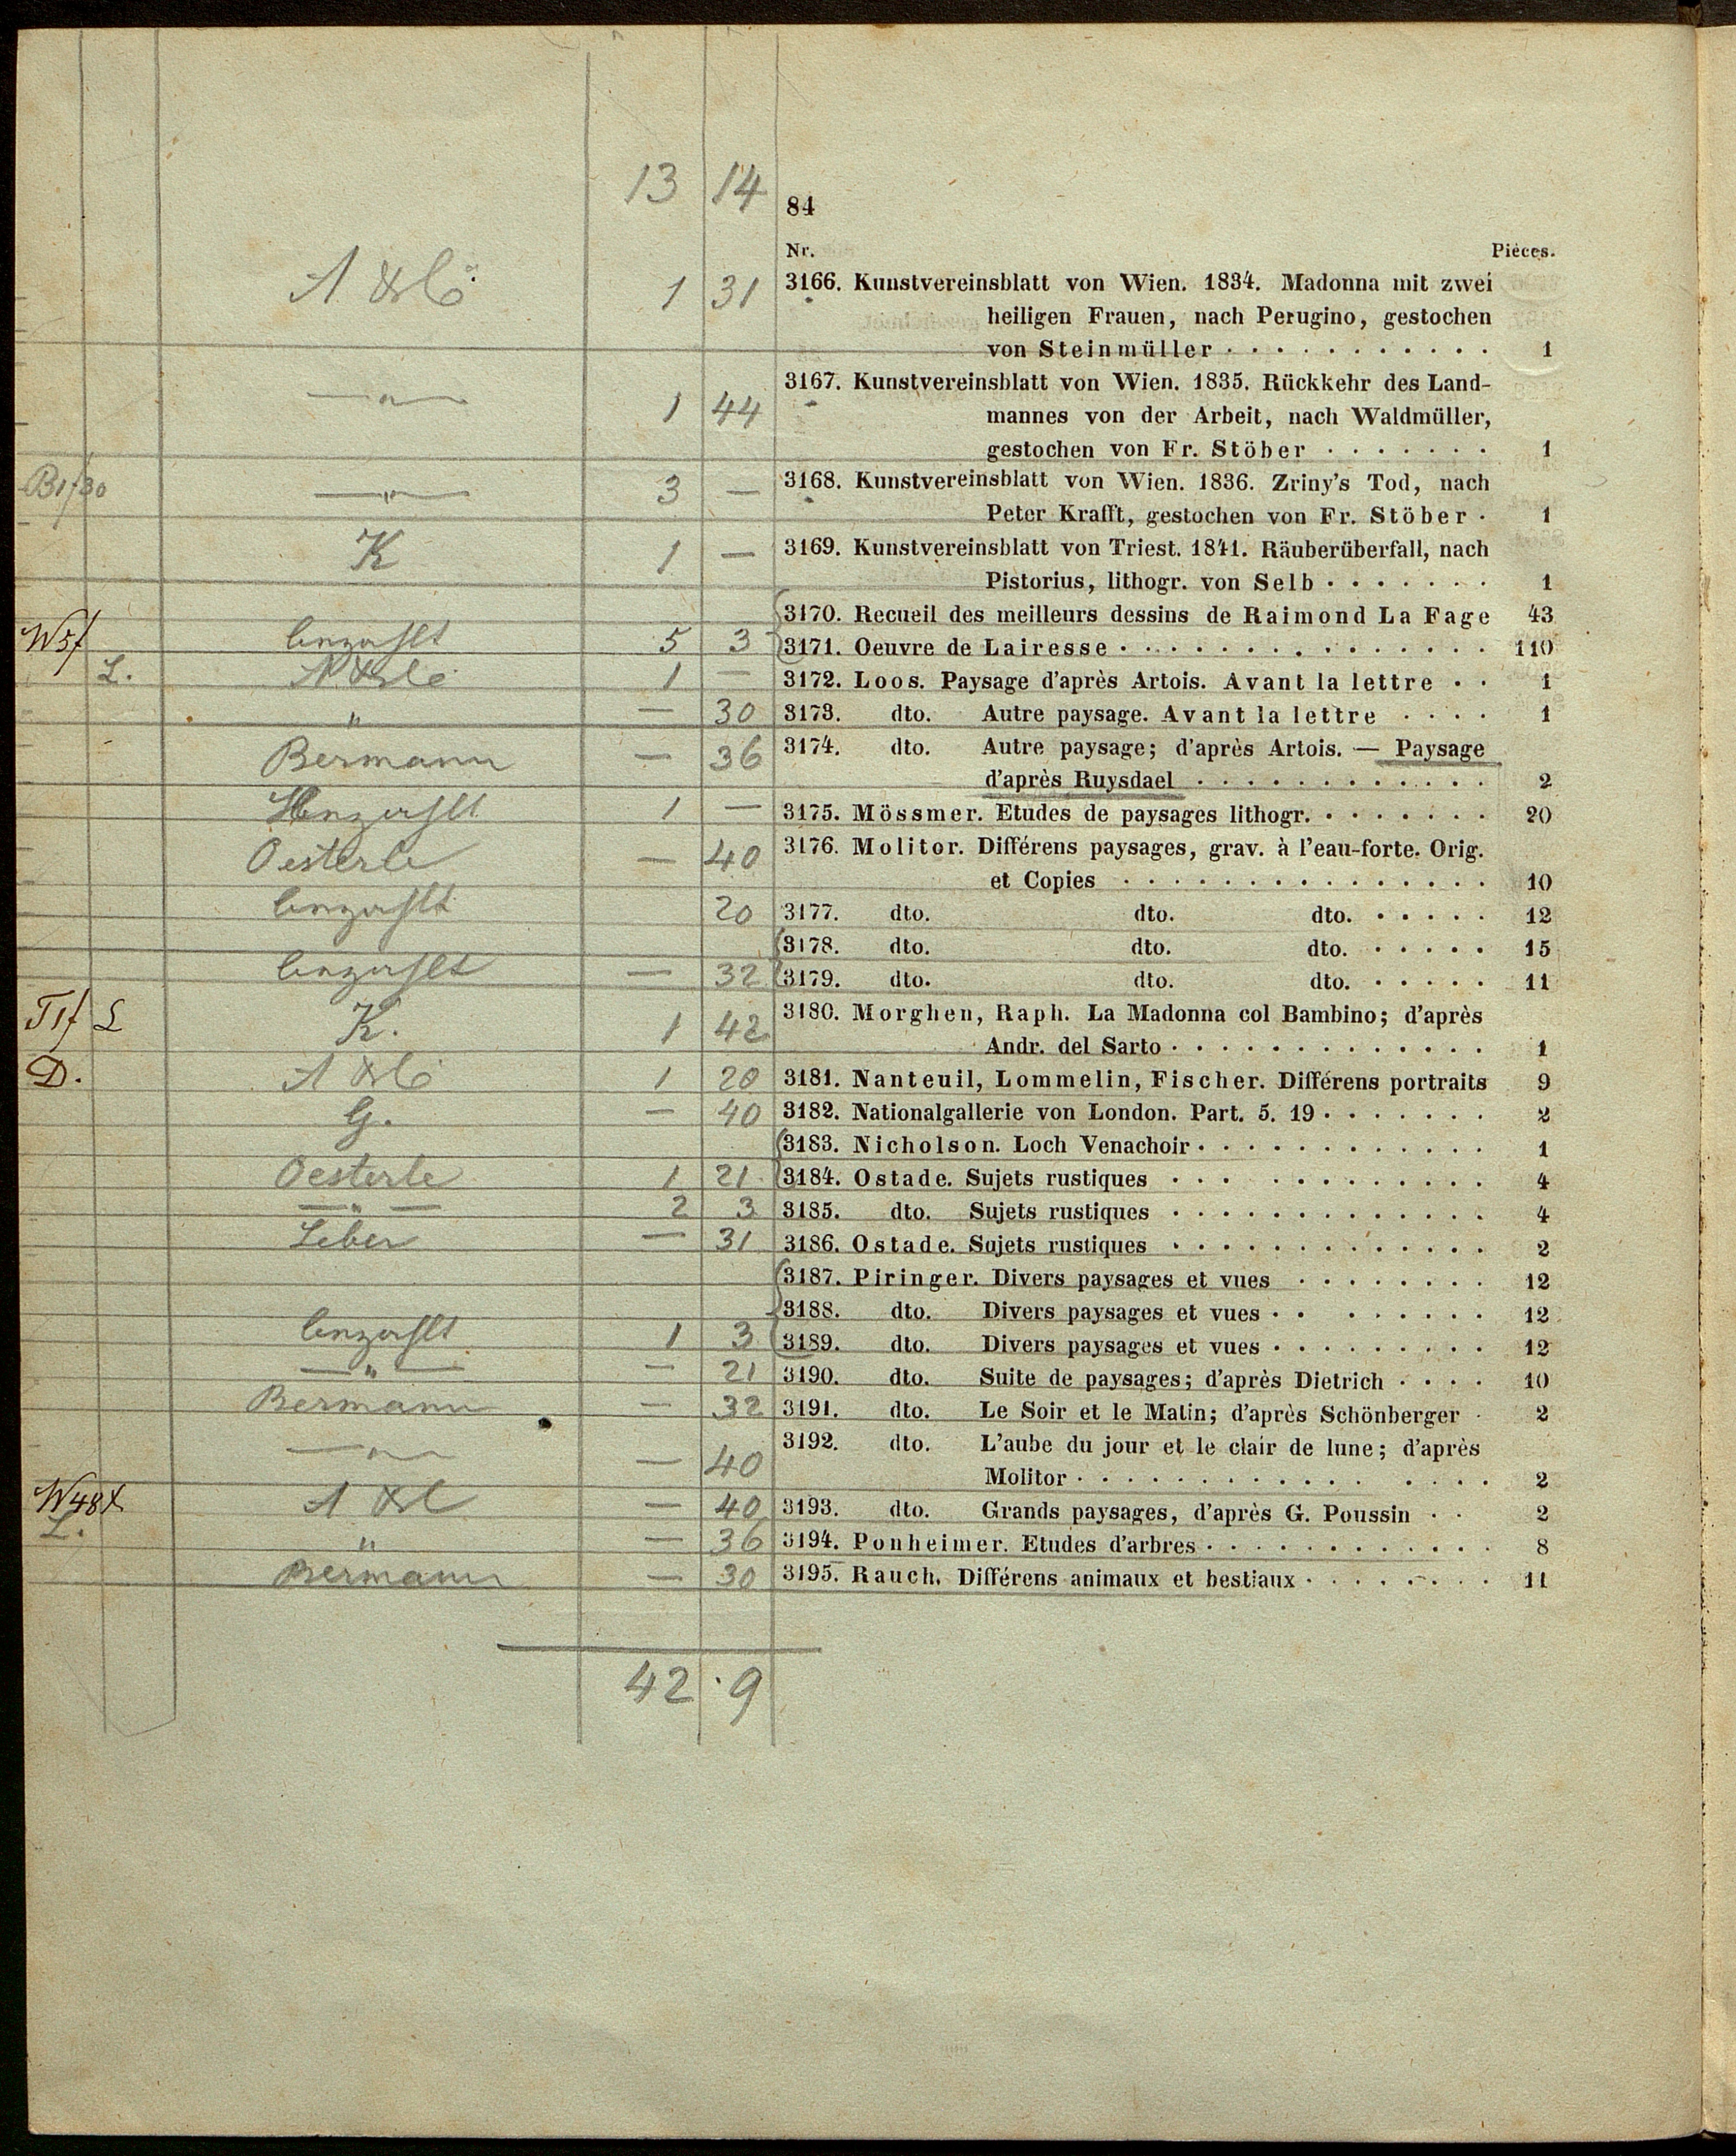 13 14
84
Nr. Pièces.
1 31 3166. Kunstvereinsblatt von Wien. 1834. Madonna mit zwei
heiligen Frauen, nach Perugino, gestochen
von Steinmüller . . . . . . . . . . . 1
3167. Kunstvereinsblatt von Wien. 1835. Rückkehr des Land-
— " — 1 44 mannes von der Arbeit, nach Waldmüller,
gestochen von Fr. Stöber . . . . . . . 1
B1f30 — " — 3 — 3168. Kunstvereinsblatt von Wien. 1836. Zriny's Tod, nach
Peter Krafft, gestochen von Fr. Stöber . 1
K 1 — 3169. Kunstvereinsblatt von Triest. 1841. Räuberüberfall, nach
Pistorius, lithogr. von Selb . . . . . . . 1
3170. Recueil des meilleurs dessins de Raimond La Fage 43
W5f 5 3 3171. Oeuvre de Lairesse . . . . . . . . . . . . . . . 110
L. 1 — 3172. Loos. Paysage d'après Artois. Avant la lettre . . 1
" — 30 3173. dto. Autre paysage. Avant la lettre . . . . 1
Bermann — 36 3174. dto. Autre paysage; d'après Artois. — Paysage
d'après Ruysdael . . . . . . . . . . . . 2
1 — 3175. Mössmer. Etudes de paysages lithogr. . . . . . . . 20
Oesterle — 40 3176. Molitor. Différens paysages, grav. à l'eau-forte. Orig.
et Copies . . . . . . . . . . . . . . . 10
20 3177. dto. dto. dto. . . . . . 12
3178. dto. dto. dto. . . . . . 15
— 32 3179. dto. dto. dto. . . . . . 11
T1f L K. 1 42 3180. Morghen, Raph. La Madonna col Bambino; d'après
Andr. del Sarto . . . . . . . . . . . . . 1
D. 1 20 3181. Nanteuil, Lommelin, Fischer. Différens portraits 9
G. — 40 3182. Nationalgallerie von London. Part. 5. 19 . . . . . . . 2
3183. Nicholson. Loch Venachoir . . . . . . . . . . . . 1
Oesterle 1 21 3184. Ostade. Sujets rustiques . . . . . . . . . . . . 4
— " — 2 3 3185. dto. Sujets rustiques . . . . . . . . . . . . . 4
Leber — 31 3186. Ostade. Sujets rustiques . . . . . . . . . . . . . 2
3187. Piringer. Divers paysages et vues . . . . . . . . 12
3188. dto. Divers paysages et vues . . . . . . . . 12
1 3 3189. dto. Divers paysages et vues . . . . . . . . . 12
— " — — 21 3190. dto. Suite de paysages; d'après Dietrich . . . . 10
Bermann — 32 3191. dto. Le Soir et le Matin; d'après Schönberger . 2
3192. dto. L'aube du jour et le clair de lune; d'après
— " — — 40 Molitor . . . . . . . . . . . . . . . . 2
W48x — 40 3193. dto. Grands paysages, d'après G. Poussin . . 2
L. " — 36 3194. Ponheimer. Etudes d'arbres . . . . . . . . . . . . 8
Bermann — 30 3195. Rauch. Différens animaux et bestiaux . . . . . . . . 11
42 . 9